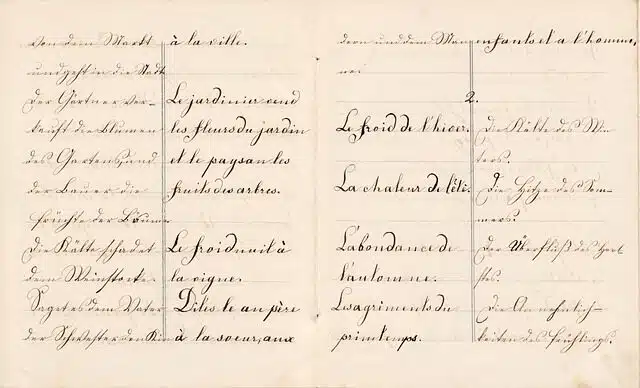 von dem Markt à la ville.
und geht in die Stadt
Der Gärtner ver- Le jardinier vend
kauft die Blumen les fleurs du jardin
des Gartens, und et le paysan les
der Bauer die fruits des arbres.
Früchte der Bäume
Die Kälte schadet Le froid nuit à
dem Weinstocke. la vigne.
Saget es dem Vater Dites le au père
der Schwester den Kin à la soeur, aux
dern und dem Man enfants et a l'homme,
2.
Le froid de l'hiver. Die Kälte des Win
ters.
La chaleur de l'été. Die Hitze des Som-
mers.
L'abondance de Der Überfluß des Herb
l'automne. stes.
Les agriments du Die Annehmlich-
printemps. keiten des Frühlings.